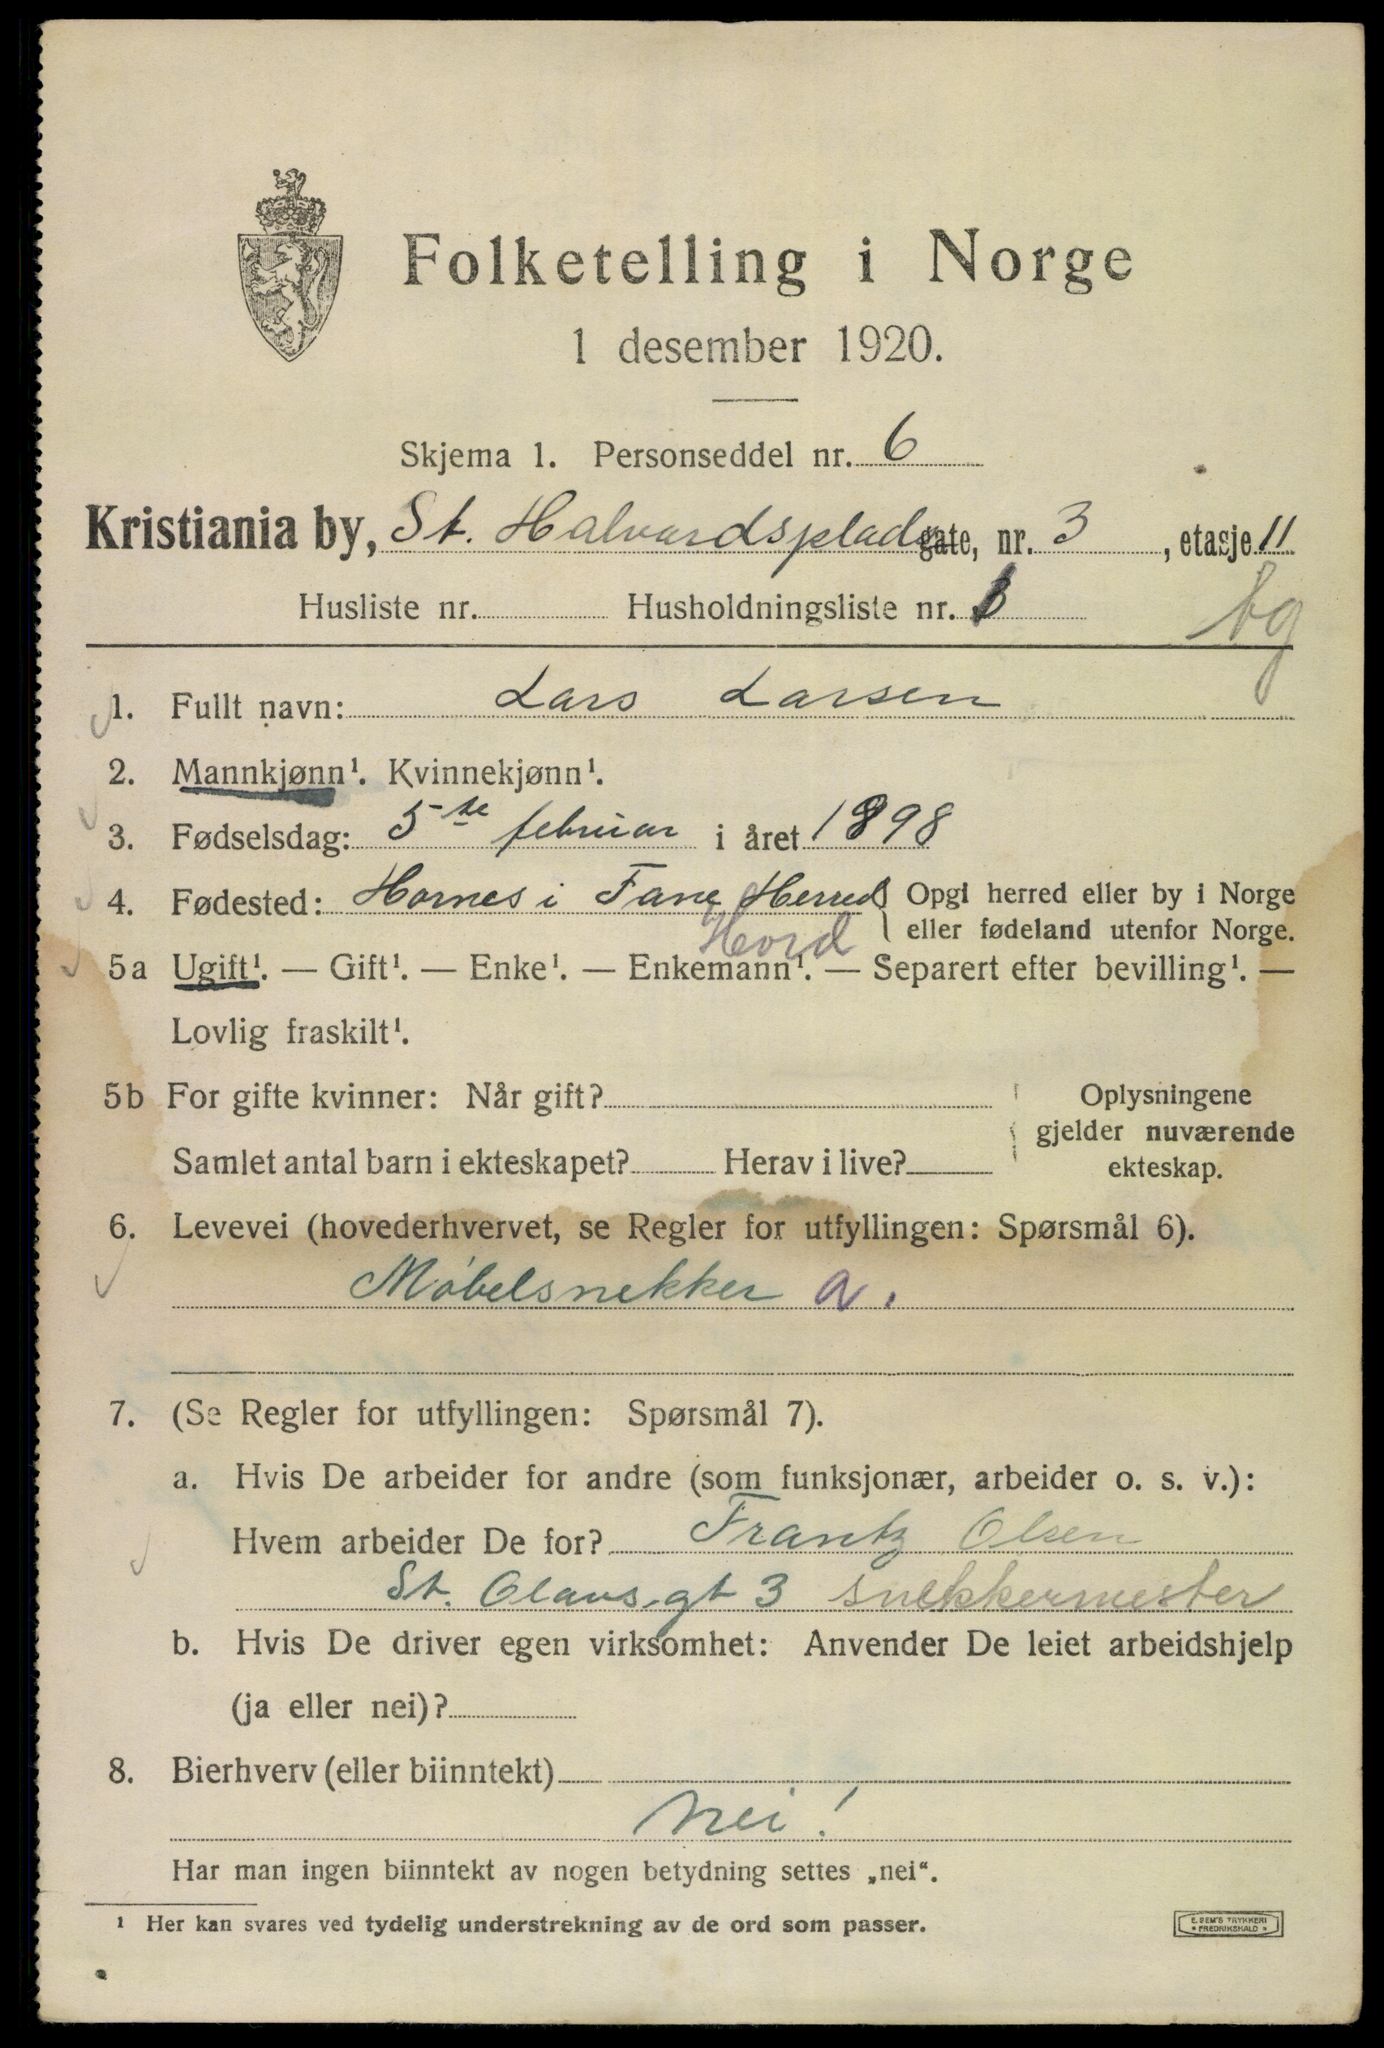 Folketelling i Norge
1 desember 1920.
Skjema 1. Personseddel nr. 6
Kristiania by, St. Halvardsplads gate, nr. 3, etasje 11
Husliste nr. Husholdningsliste nr.
bg
1. Fullt navn: Lars Larsen
2. Mannkjønn¹. Kvinnekjønn¹.
3. Fødselsdag: 5te februar i året 1898
4. Fødested: Hornes i Fane Herred { Opgi herred eller by i Norge
eller fødeland utenfor Norge.
Hord
5a Ugift¹. — Gift¹. — Enke¹. — Enkemann¹. — Separert efter bevilling¹. —
Lovlig fraskilt¹.
5b For gifte kvinner: Når gift? Oplysningene
gjelder nuværende
Samlet antal barn i ekteskapet? Herav i live? ekteskap.
6. Levevei (hovederhvervet, se Regler for utfyllingen: Spørsmål 6).
Møbelsnekker a.
7. (Se Regler for utfyllingen: Spørsmål 7).
a. Hvis De arbeider for andre (som funksjonær, arbeider o. s. v.):
Hvem arbeider De for? Frantz Olsen
St. Olavs gt 3 snekkermester
b. Hvis De driver egen virksomhet: Anvender De leiet arbeidshjelp
(ja eller nei)?
8. Bierhverv (eller biinntekt)
nei!
Har man ingen biinntekt av nogen betydning settes „nei“.
¹ Her kan svares ved tydelig understrekning av de ord som passer.
E. SEM'S TRYKKERI
* FREDRIKSHALD *